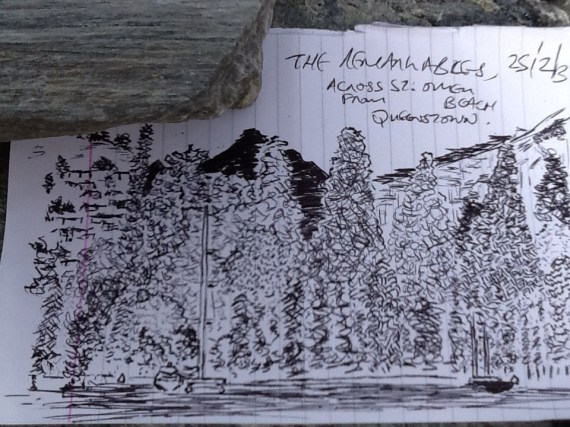 THE REMARKABLES, 25/2/3
ACROSS ST. OMER
FROM BEACH
QUEENSTOWN.